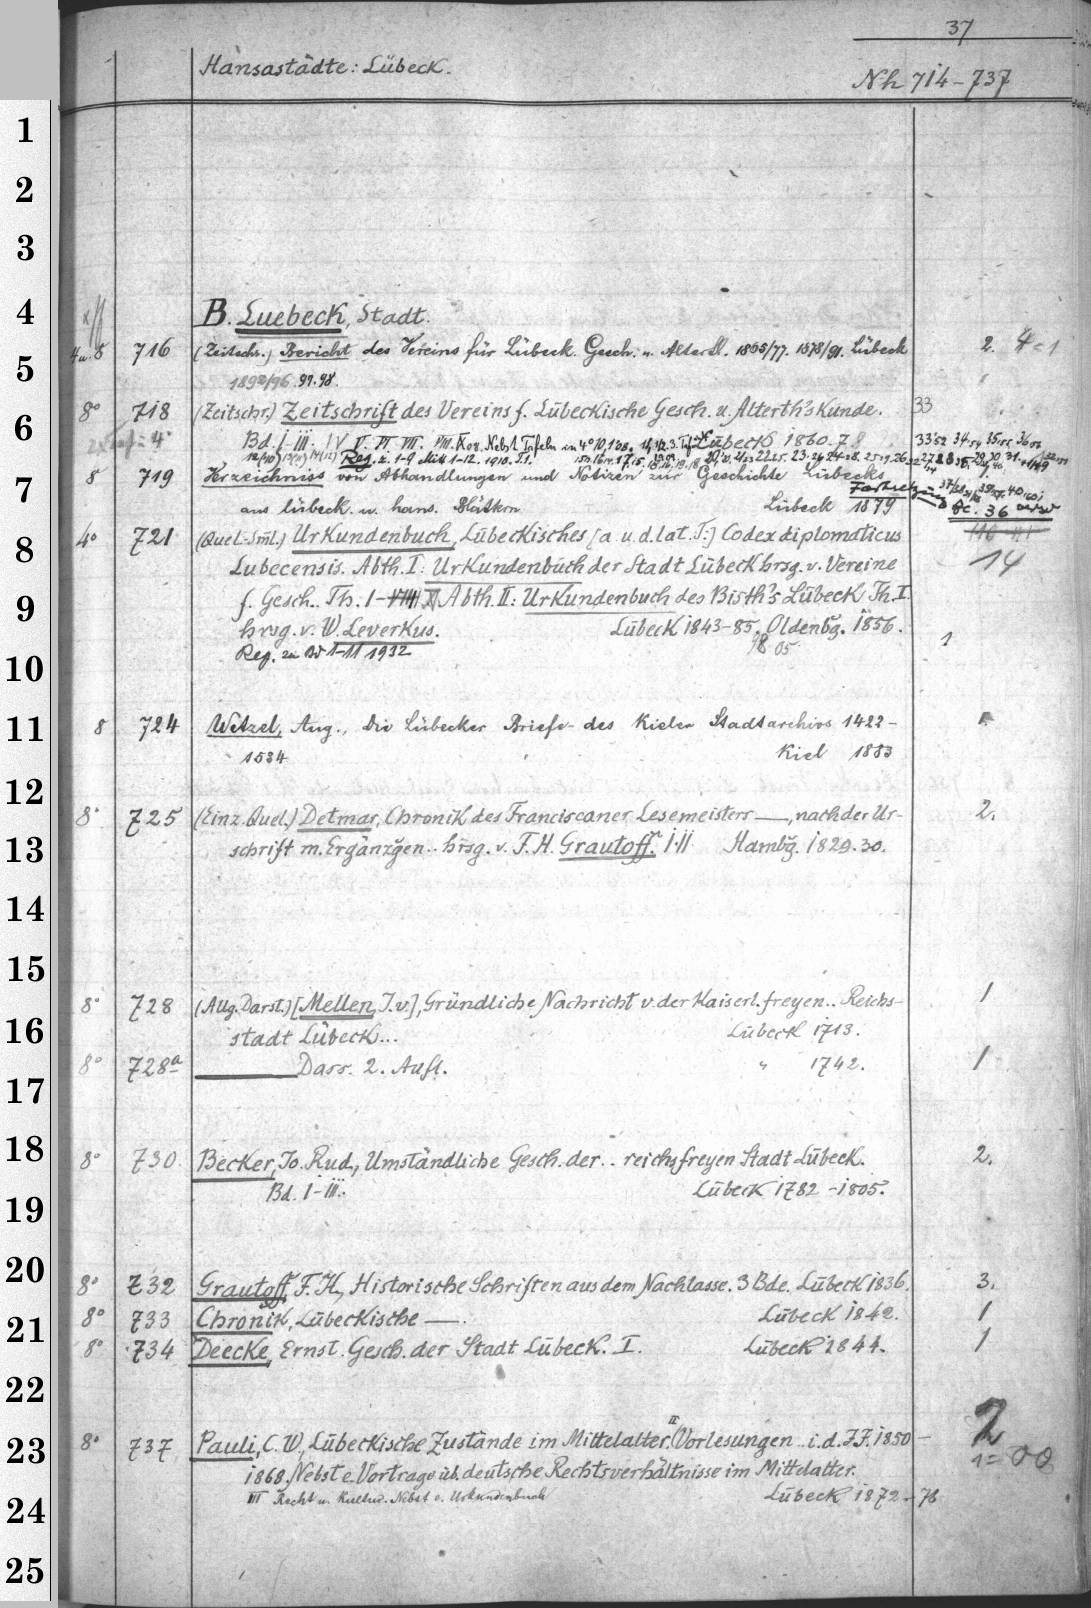 37
Hansastädte: Lübeck.
Nh 714-737
1
2
3
4
B. Luebeck, Stadt.
5
4 u. 8 716 (Zeitschr.) Bericht des Vereins für Lübeck. Gesch. u. Altertk. 1865/77. 1878/91. Lübeck 2.
97. 98.
6
8° 718 (Zeitschr.) Zeitschrift des Vereins f. Lübeckische Gesch. u. Alterth's Kunde. 33
Bd. I-III. IV V. VI. VII. VIII. IX Nebst Tafeln in 4° Lübeck 1860. 78
Reg. z. 1-9 Mitt 1-12. 1910.
7
8 719 Verzeichniss von Abhandlungen und Notizen zur Geschichte Lübecks
aus lübeck. u. hans. Blättern Lübeck 1879 Fortsetzung
8
4° 721 (Quel.-Sml.) Urkundenbuch, Lübeckisches [a. u. d. lat. T.:] Codex diplomaticus
Lubecensis. Abth. I: Urkundenbuch der Stadt Lübeck hrsg. v. Vereine 14
9
f. Gesch.. Th. I- Abth. II: Urkundenbuch des Bisth's Lübeck Th. I.
hrsg. v. W. Leverkus. Lübeck 1843-85, Oldenbg. 1856. 1
10
Reg. zu Bd 1-11 1932
11
8 724 Wetzel, Aug., Die Lübecker Briefe des Kieler Stadtarchivs 1422-
1534 Kiel 1883
12
8° 725 (Einz. Quel.) Detmar, Chronik des Franciscaner Lesemeisters —, nach der Ur- 2.
13
schrift m. Ergänzgen.. hrsg. v. F. H. Grautoff. I.II. Hambg. 1829.30.
14
15
8° 728 (Allg. Darst.) [Mellen, J. v.], Gründliche Nachricht v. der Kaiserl. freyen.. Reichs- 1
16
stadt Lübeck... Lübeck 1713.
8° 728a — Dass. 2. Aufl. " 1742. 1
17
18
8° 730 Becker, Jo. Rud., Umständliche Gesch. der.. reichsfreyen Stadt Lübeck. 2.
19
Bd. I-III. Lübeck 1782-1805.
20
8° 732 Grautoff, F. H., Historische Schriften aus dem Nachlasse. 3 Bde. Lübeck 1836. 3.
8° 733 Chronik, Lübeckische —. Lübeck 1842. 1
21
8° 734 Deecke, Ernst. Gesch. der Stadt Lübeck. I. Lübeck 1844. 1
22
23
8° 737 Pauli, C. W., Lübeckische Zustände im Mittelalter. II Vorlesungen.. i. d. J. J. 1850- 2
1868. Nebst e. Vortrage üb. deutsche Rechtsverhältnisse im Mittelalter.
24
III Recht u. Kultur. Nebst e. Urkundenbuch Lübeck 1872-78
25